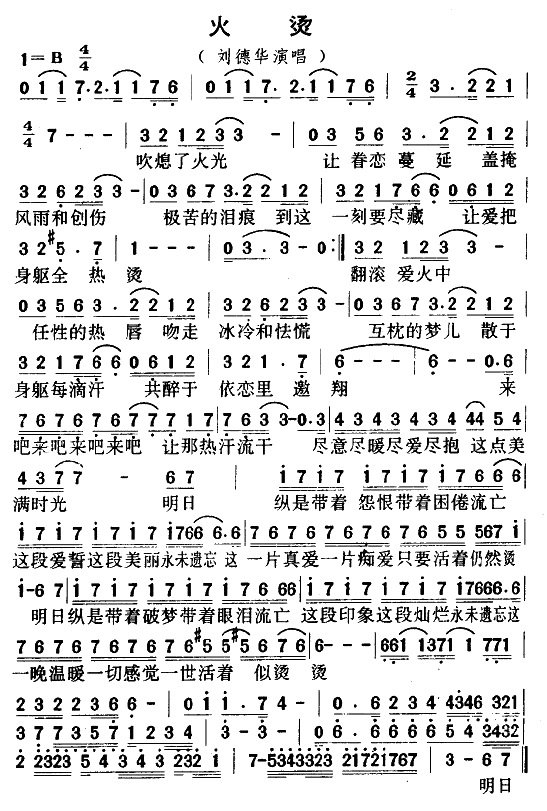 火 烫
1=B 4/4 （刘德华演唱）
0 1 1 7. 2. 1 1 7 6 | 0 1 1 7. 2. 1 1 7 6 | 2/4 3 . 2 2 1 |
4/4 7 - - - | 3 2 1 2 3 3 - | 0 3 5 6 3. 2 2 1 2 |
吹熄了火光 让 眷恋 蔓 延 盖掩
3 2 6 2 3 3 - | 0 3 6 7 3. 2 2 1 2 | 3 2 1 7 6 6 0 6 1 2 |
风雨和创伤 极苦的泪痕 到这 一刻要尽藏 让爱把
3 2 #5 . 7 | 1 - - - | 0 3 . 3 - 0 :| 3 2 1 2 3 3 - |
身躯全 热 烫 翻滚 爱火中
0 3 5 6 3. 2 2 1 2 | 3 2 6 2 3 3 - | 0 3 6 7 3. 2 2 1 2 |
任性的热 唇 吻走 冰冷和怯慌 互枕的梦儿 散于
3 2 1 7 6 6 0 6 1 2 | 3 2 1 . 7 | 6 - - - | 6 - - 0. 6 |
身躯每滴汗 共醉于 依恋里 遨 翔 来
7 6 7 6 7 6 7 7 7 1 7 | 7 6 2 3 3 - 0. 3 | 4 3 4 3 4 3 4 4 4 5 4 |
吧来吧来吧来吧 让那热汗流干 尽意尽暖尽爱尽抱 这点美
4 3 7 7 - 6 7 | i 7 i 7 i 7 i 7 i 7 6 6 |
满时光 明日 纵是带着 怨恨带着困倦流亡
i 7 i 7 i 7 i 7 i 7 6 6 6. 6 | 7 6 7 6 7 6 7 6 5 5 5 6 7 i |
这段爱誓这段美丽永未遗忘 这 一片真爱一片痴爱只要活着仍然烫
i - 6 7 | i 7 i 7 i 7 i 7 i 7 6 6 | i 7 i 7 i 7 i 7 i 7 6 6 6. 6 |
明日纵是带着破梦带着眼泪流亡 这段印象这段灿烂永未遗忘这
7 6 7 6 7 6 7 6 #5 5 #5 6 7 6 | 6 - - - | 6 6 1 1 3 7 1 1 7 7 1 |
一晚温暖一切感觉一世活着 似烫 烫
2 3 2 2 3 6 6 - | 0 i i . 7 | 7 - - - | 0 . 6 2 3 4 4 3 4 6 3 2 1 |
3 7 7 3 5 7 1 2 3 4 | 3 - 3 - | 0 . 6 2 3 4 5 5 3 4 3 2 |
2 2 3 2 3 5 4 3 4 3 2 3 2 1 | 7 - 5 3 4 3 3 2 3 2 1 7 2 1 7 6 7 | 3 - 6 7 ||
明日